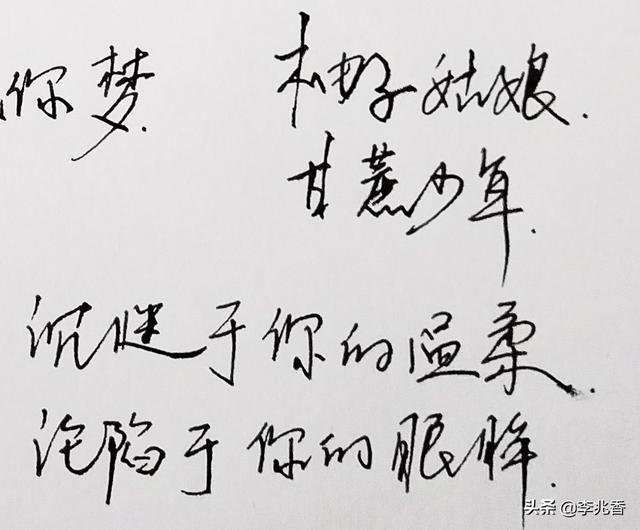 你梦.
柚子姑娘.
甘蔗少年.
沉迷于你的温柔.
沦陷于你的眼眸.
头条 @李兆香